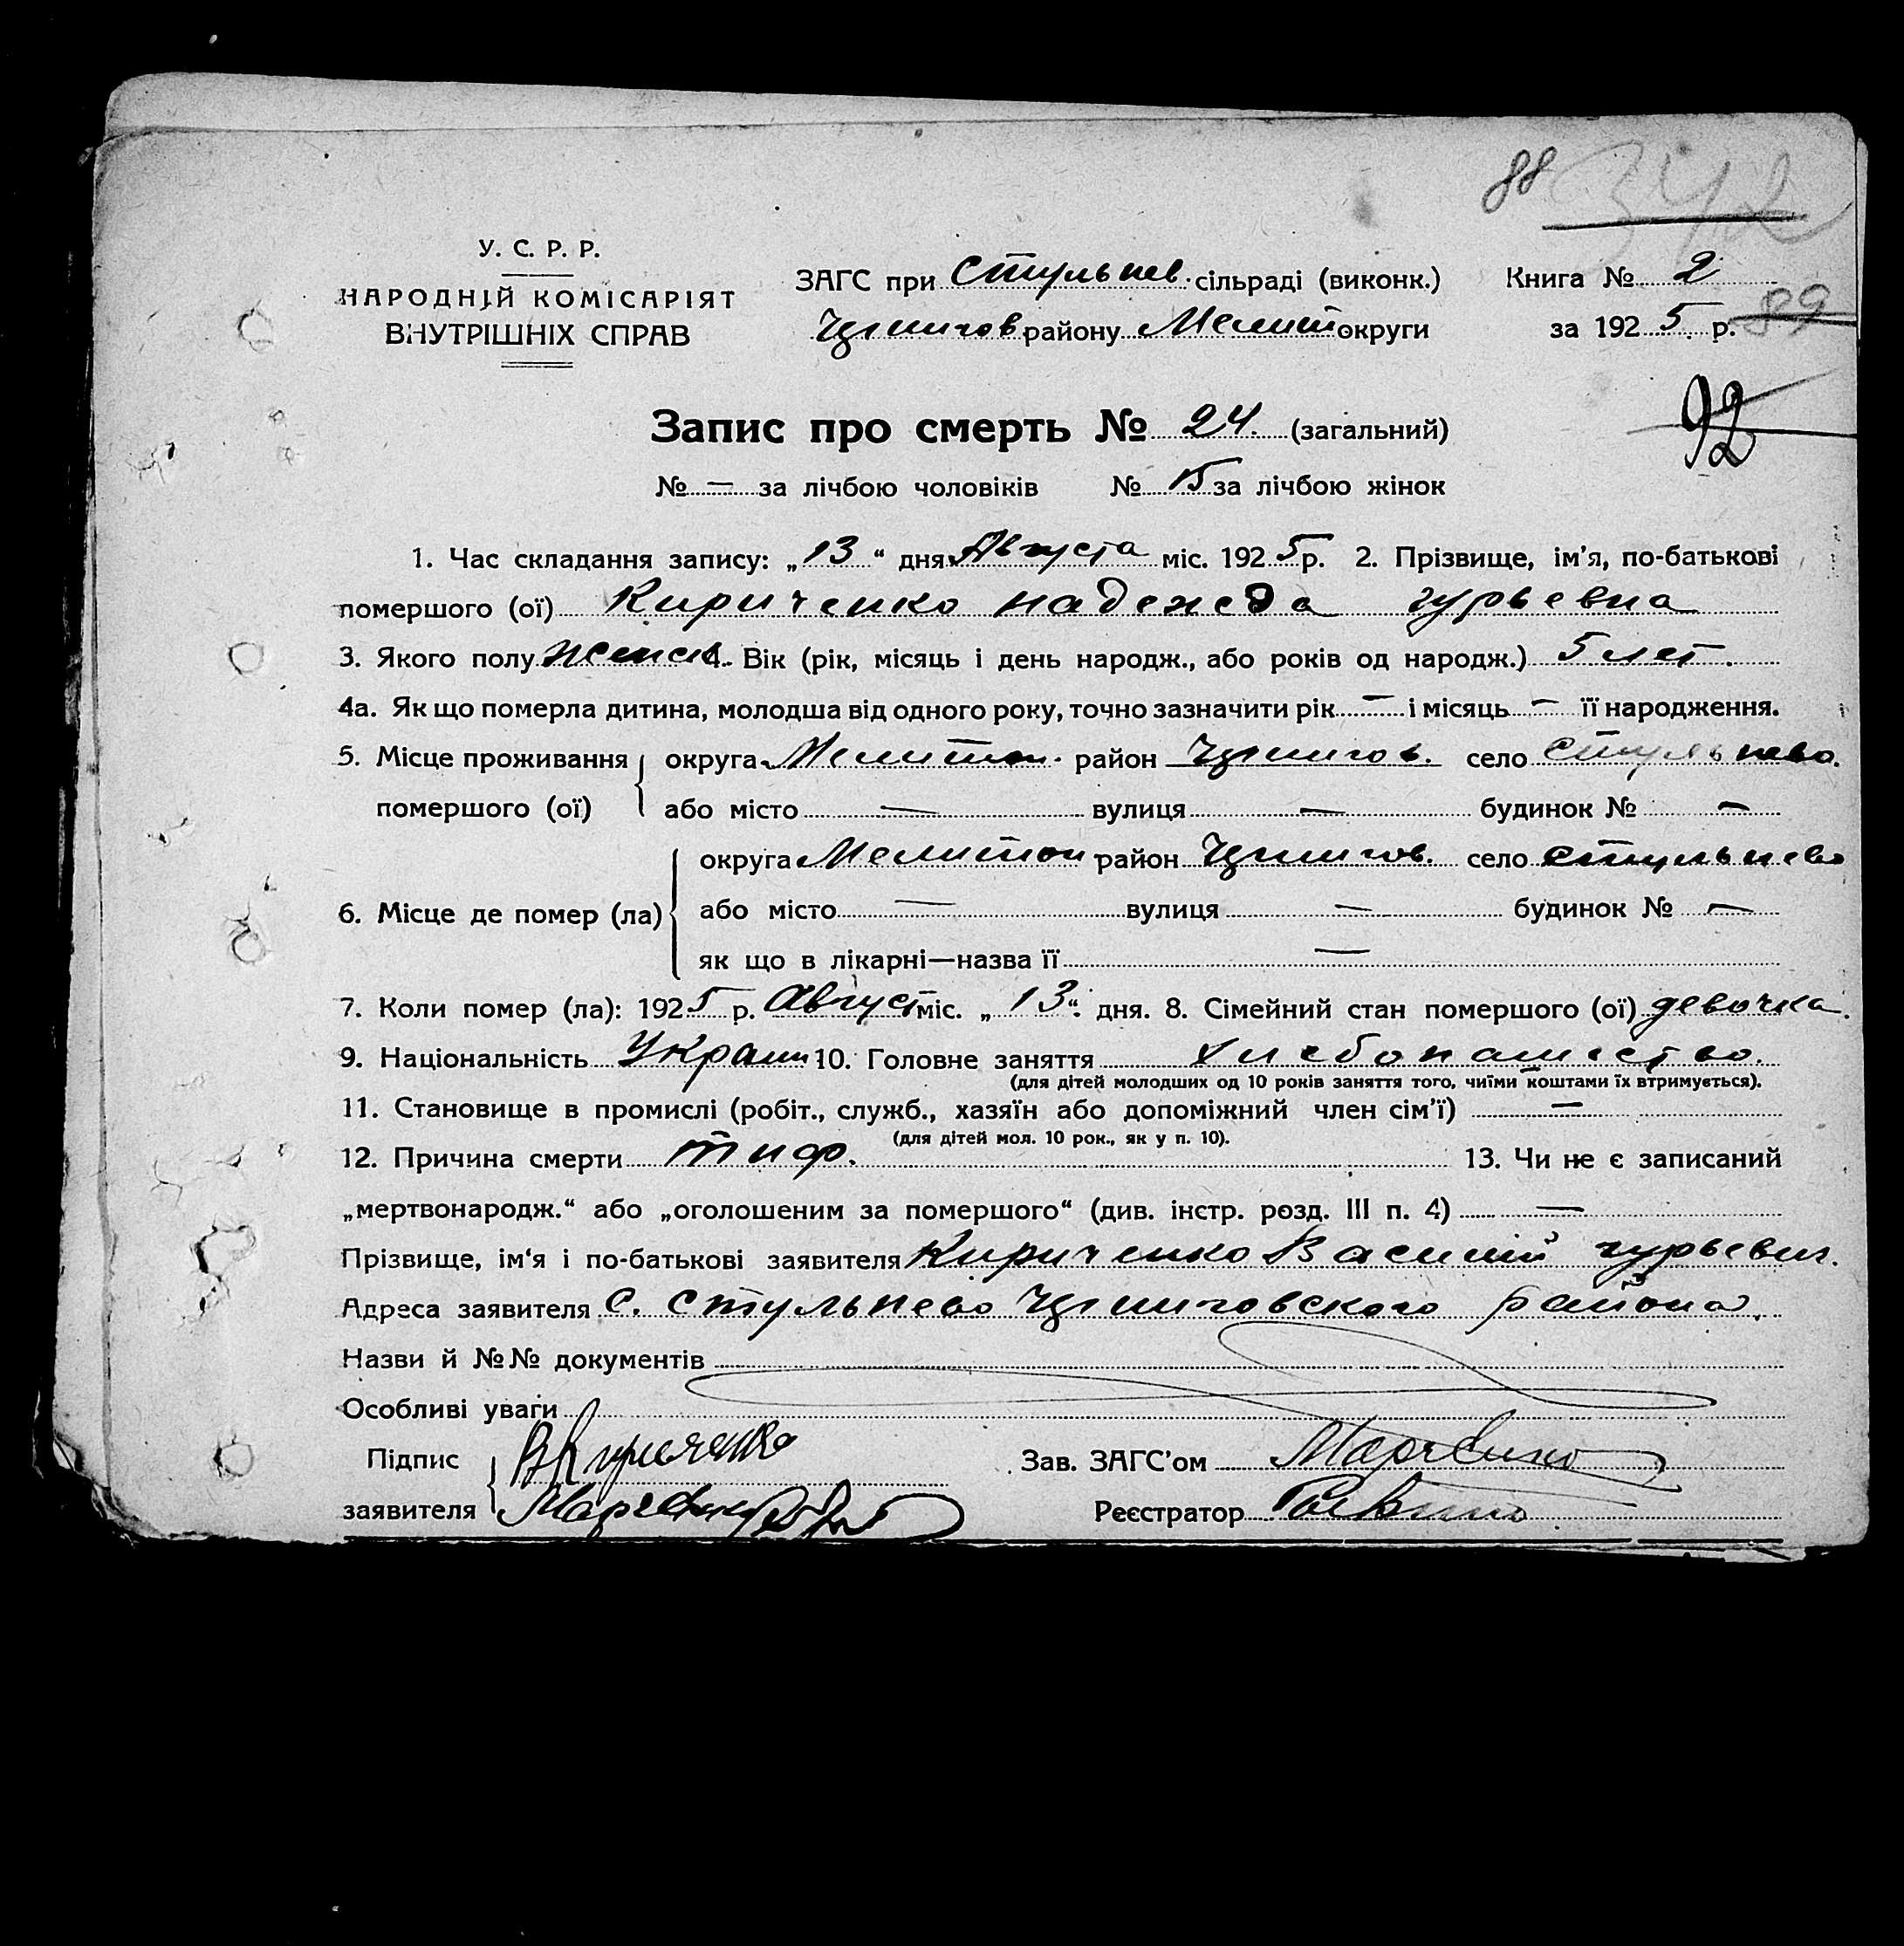 88 342
У. С. Р. Р.
НАРОДНІЙ КОМІСАРІЯТ
ВНУТРІШНІХ СПРАВ
ЗАГС при Стульнев. сільраді (виконк.) Книга № 2
району Мелитоп округи за 1925 р. 89
92
Запис про смерть № 24. (загальний)
№ — за лічбою чоловіків № 15 за лічбою жінок
1. Час складання запису: „13“ дня Августа міс. 1925 р. 2. Прізвище, ім'я, по-батькові
помершого (ої) Кириченко Надежда Гурьевна
3. Якого полу Женск. 4. Вік (рік, місяць і день народж., або років од народж.) 5 лет.
4а. Як що померла дитина, молодша від одного року, точно зазначити рік — і місяць — її народження.
5. Місце проживання округа Мелитоп. район село Стульнево.
помершого (ої) або місто — вулиця — будинок № —
округа Мелитоп район село Стульнево
6. Місце де помер (ла) або місто — вулиця — будинок № —
як що в лікарні—назва її —
7. Коли помер (ла): 1925 р. Август міс. „13“ дня. 8. Сімейний стан помершого (ої) девочка.
9. Національність Украин 10. Головне заняття Хлебопашество.
(для дітей молодших од 10 років заняття того, чиїми коштами їх втримується).
11. Становище в промислі (робіт., служб., хазяїн або допоміжний член сім'ї) —
(для дітей мол. 10 рок., як у п. 10).
12. Причина смерти тиф. 13. Чи не є записаний
„мертвонародж.“ або „оголошеним за помершого“ (див. інстр. розд. III п. 4) —
Прізвище, ім'я і по-батькові заявителя Кириченко Василий Гурьевич.
Адреса заявителя с. Стульнево района.
Назви й №№ документів
Особливі уваги
Підпис ВКириченко Зав. ЗАГС'ом
заявителя Реєстратор